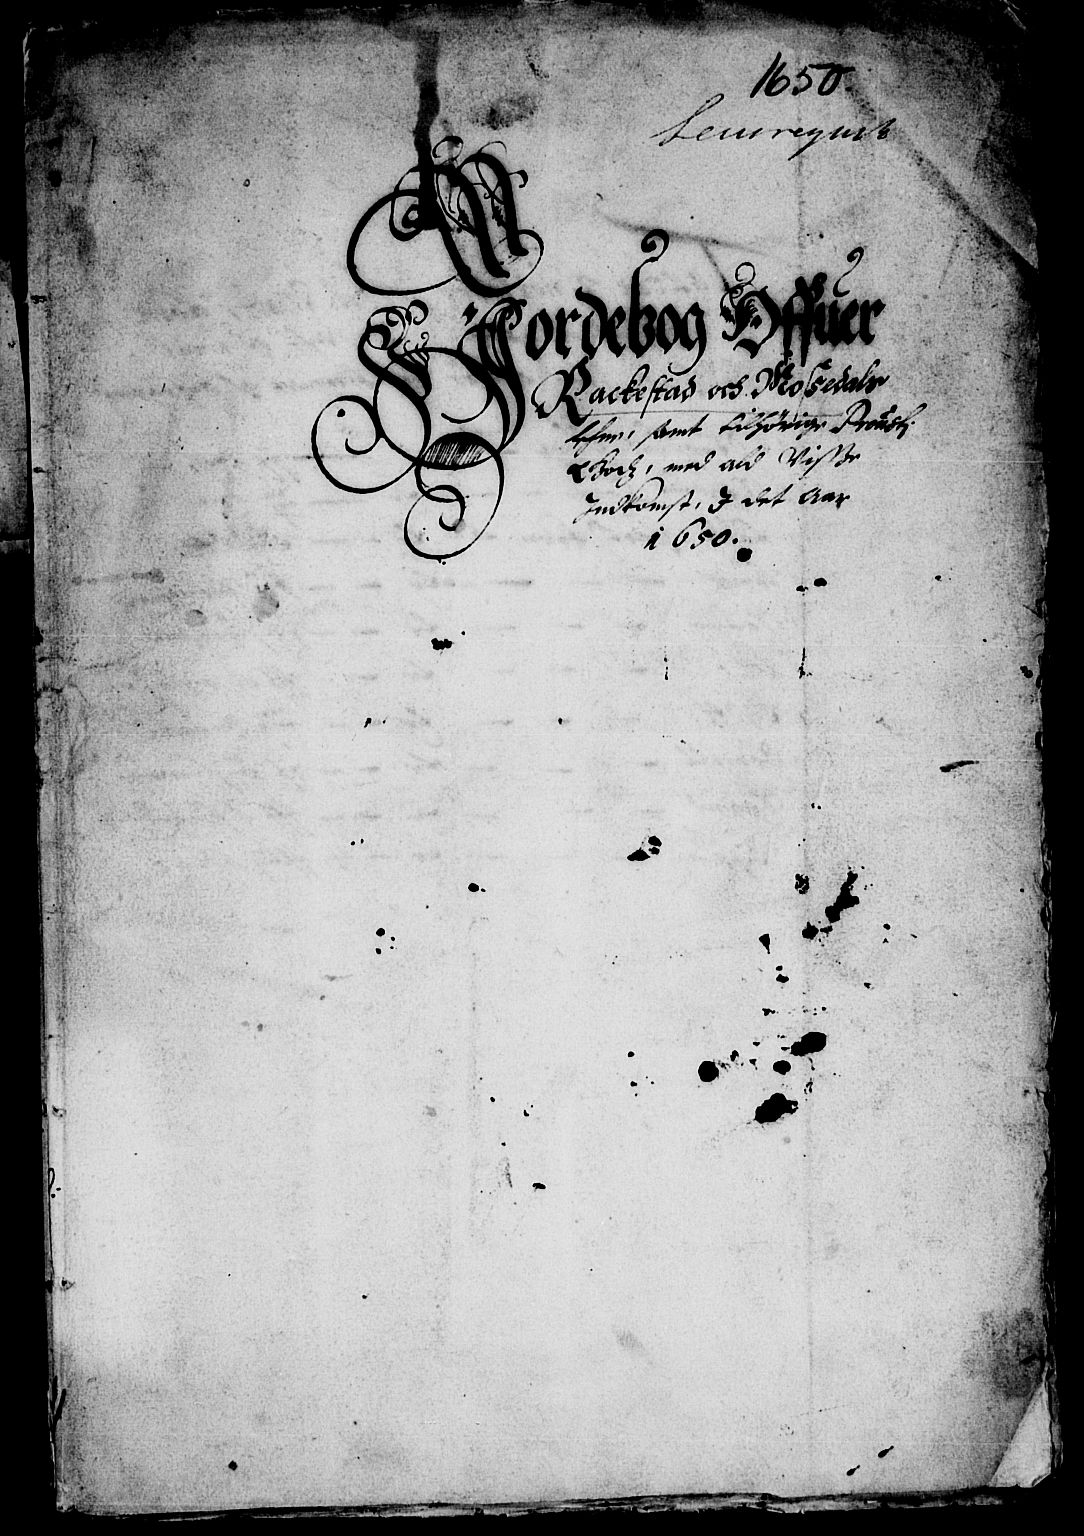 1650.
Lensregnsk
Jordebog Offuer
Rackestad och Mossedals
lehn, samt tilhörige Prousti
Godz, med ald Visße
Indkomst, I det Aar
1650.